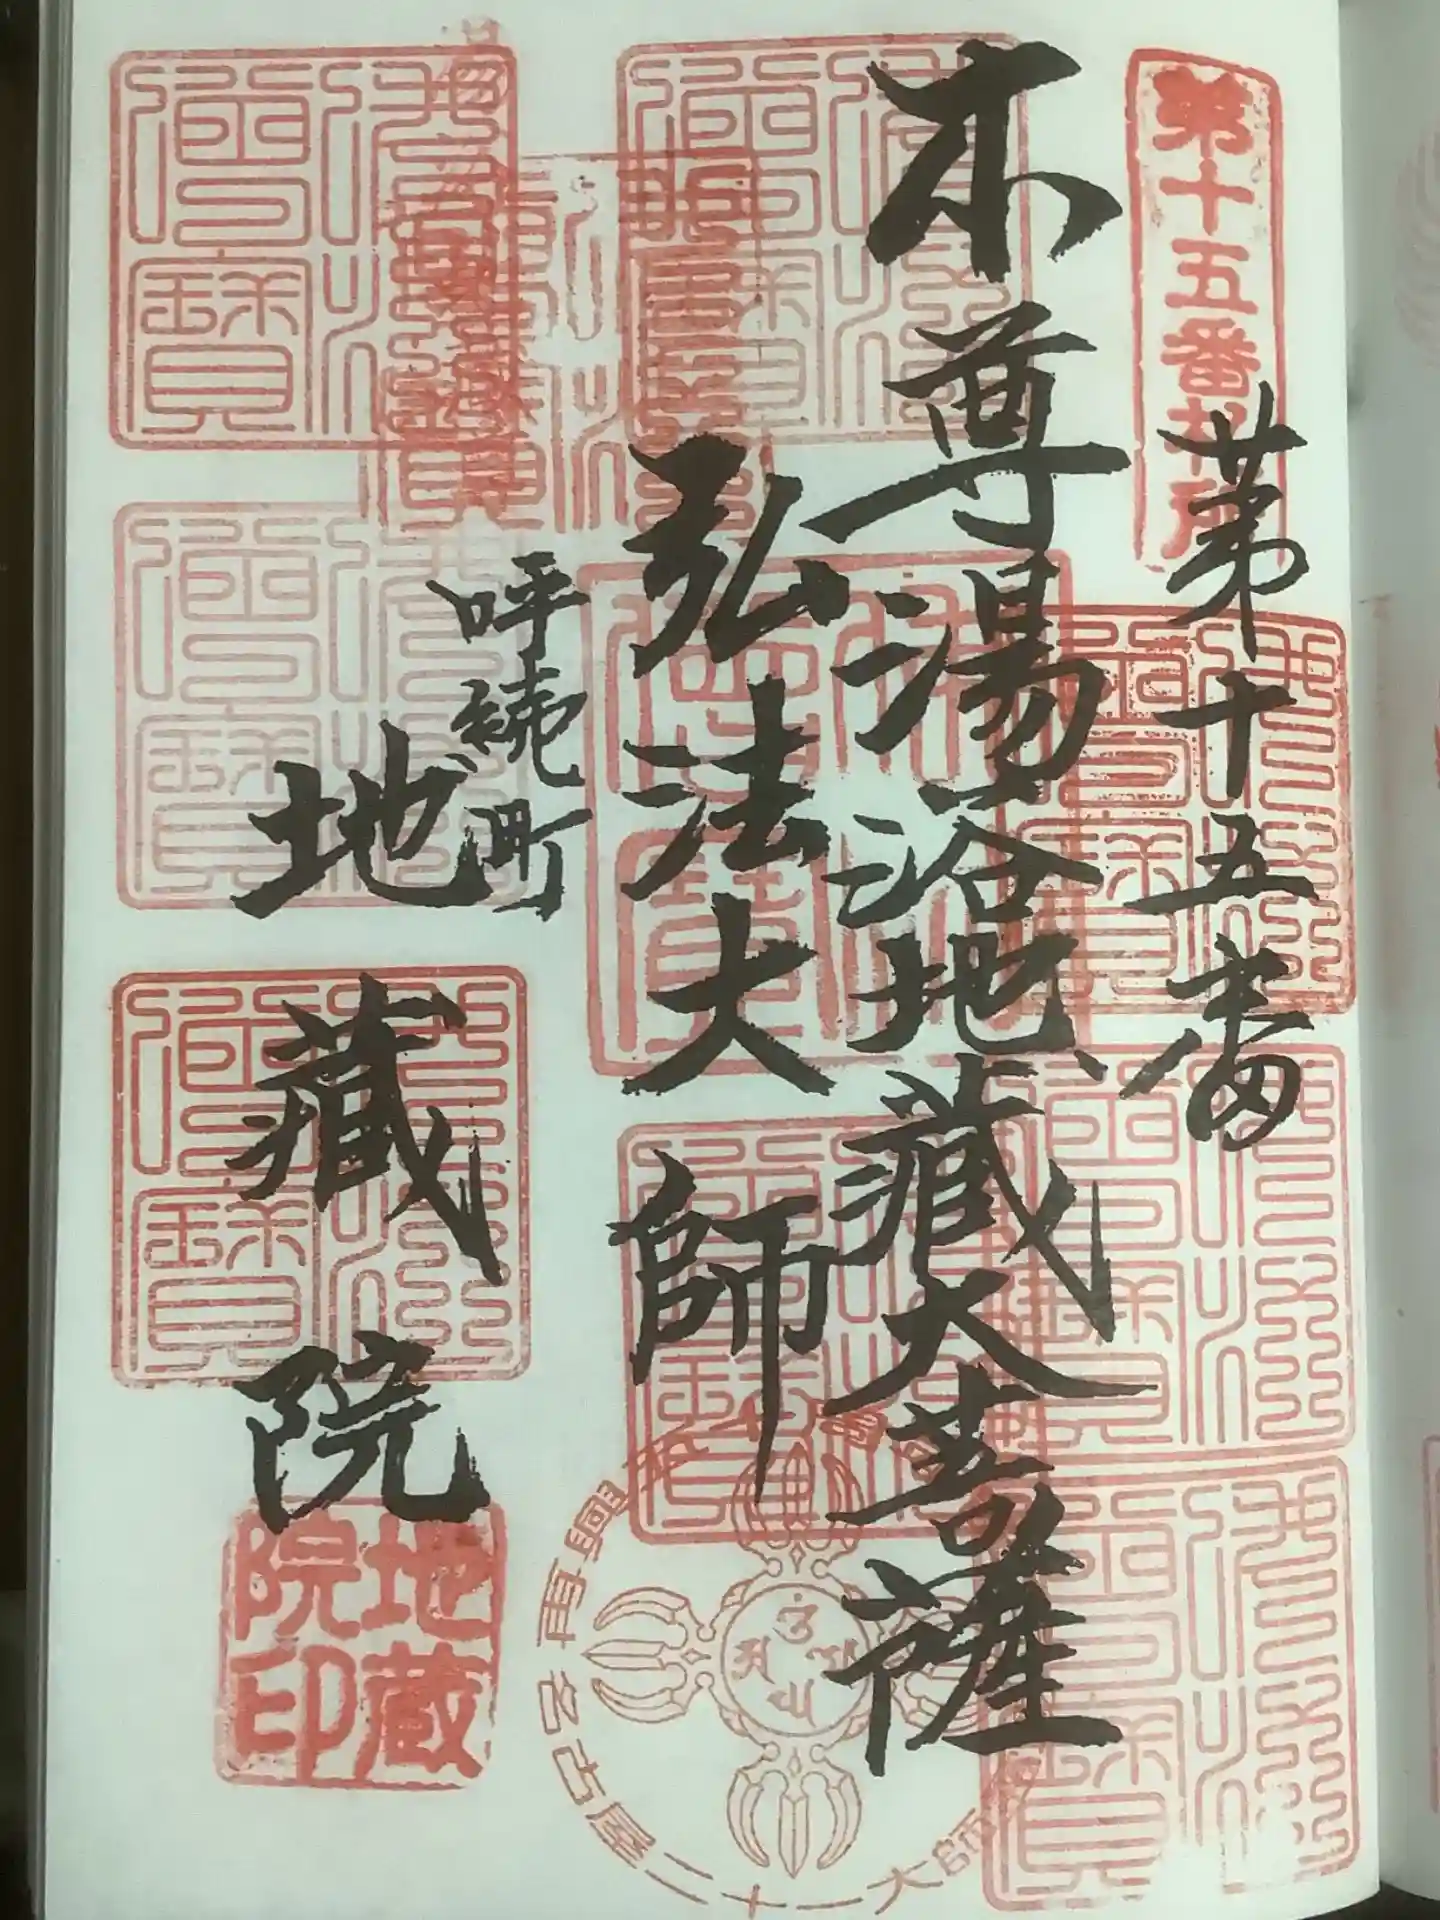 第十五番札所
第十五番
本尊湯浴地蔵大菩薩
弘法大師
呼続町
地蔵院
地蔵院印
佛法僧寶
再興
名古屋二十一大師